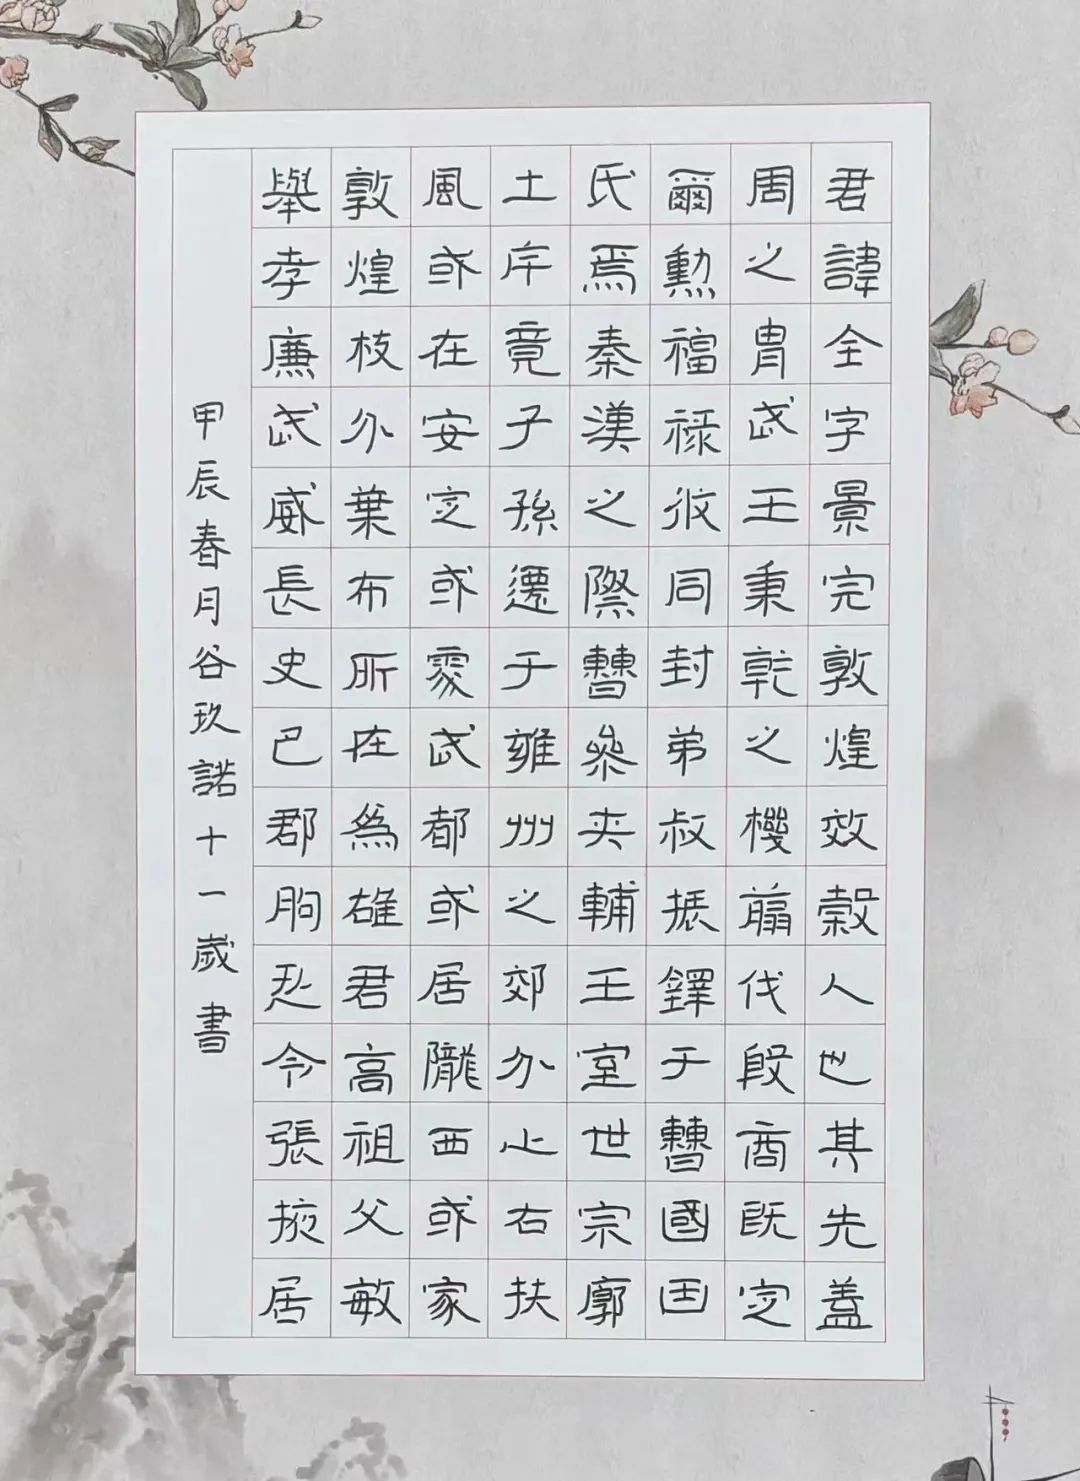 君諱全字景完敦煌效穀人也其先蓋
周之胄武王秉乾之機翦伐殷商既定
爾勲福祿攸同封弟叔振鐸于曹國因
氏焉秦漢之際曹參夾輔王室世宗廓
土斥竟子孫遷于雍州之郊分止右扶
風或在安定或處武都或居隴西或家
敦煌枝分葉布所在為雄君高祖父敏
舉孝廉武威長史巴郡朐忍令張掖居
甲辰春月谷玖諾十一歲書